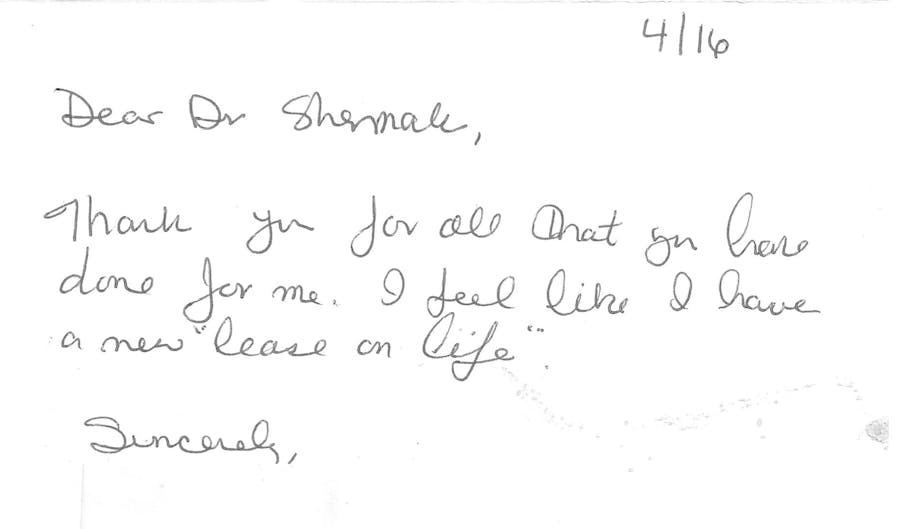 4/16
Dear Dr Shermak,
Thank you for all that you have
done for me. I feel like I have
a new "lease on life".
Sincerely,